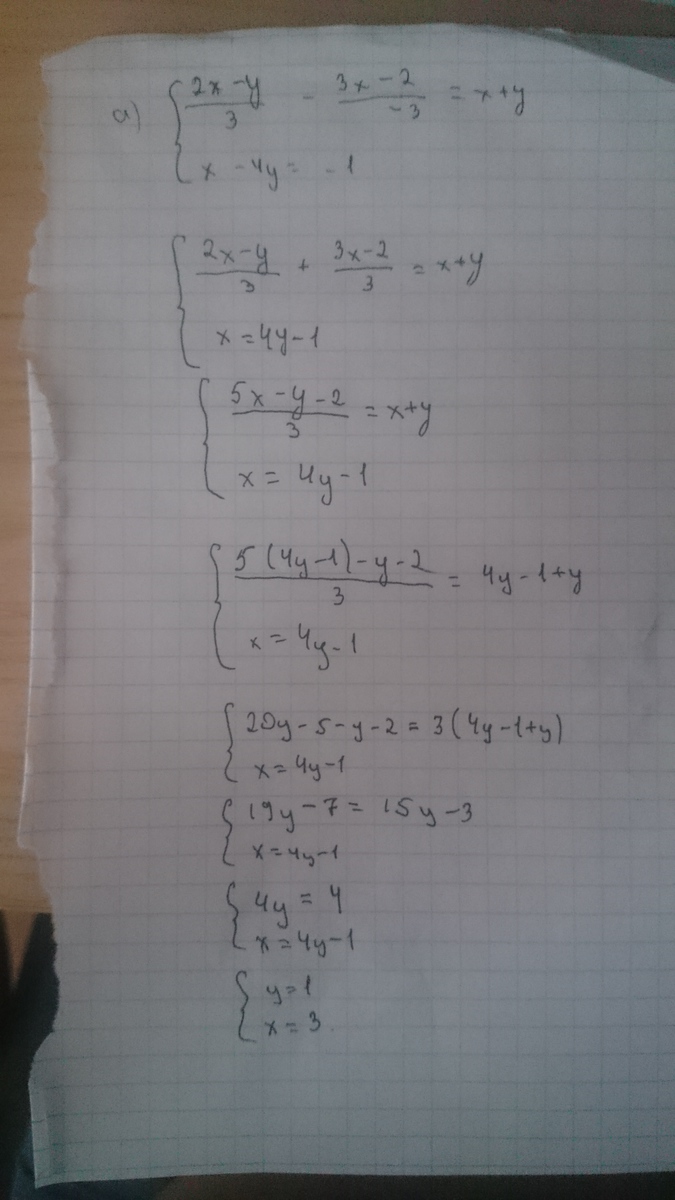 a) { (2x-y)/3 - (3x-2)/(-3) = x+y
x - 4y = -1
{ (2x-y)/3 + (3x-2)/3 = x+y
x = 4y-1
{ (5x-y-2)/3 = x+y
x = 4y-1
{ (5(4y-1)-y-2)/3 = 4y-1+y
x = 4y-1
{ 20y-5-y-2 = 3(4y-1+y)
x = 4y-1
{ 19y-7 = 15y-3
x = 4y-1
{ 4y = 4
x = 4y-1
{ y = 1
x = 3.